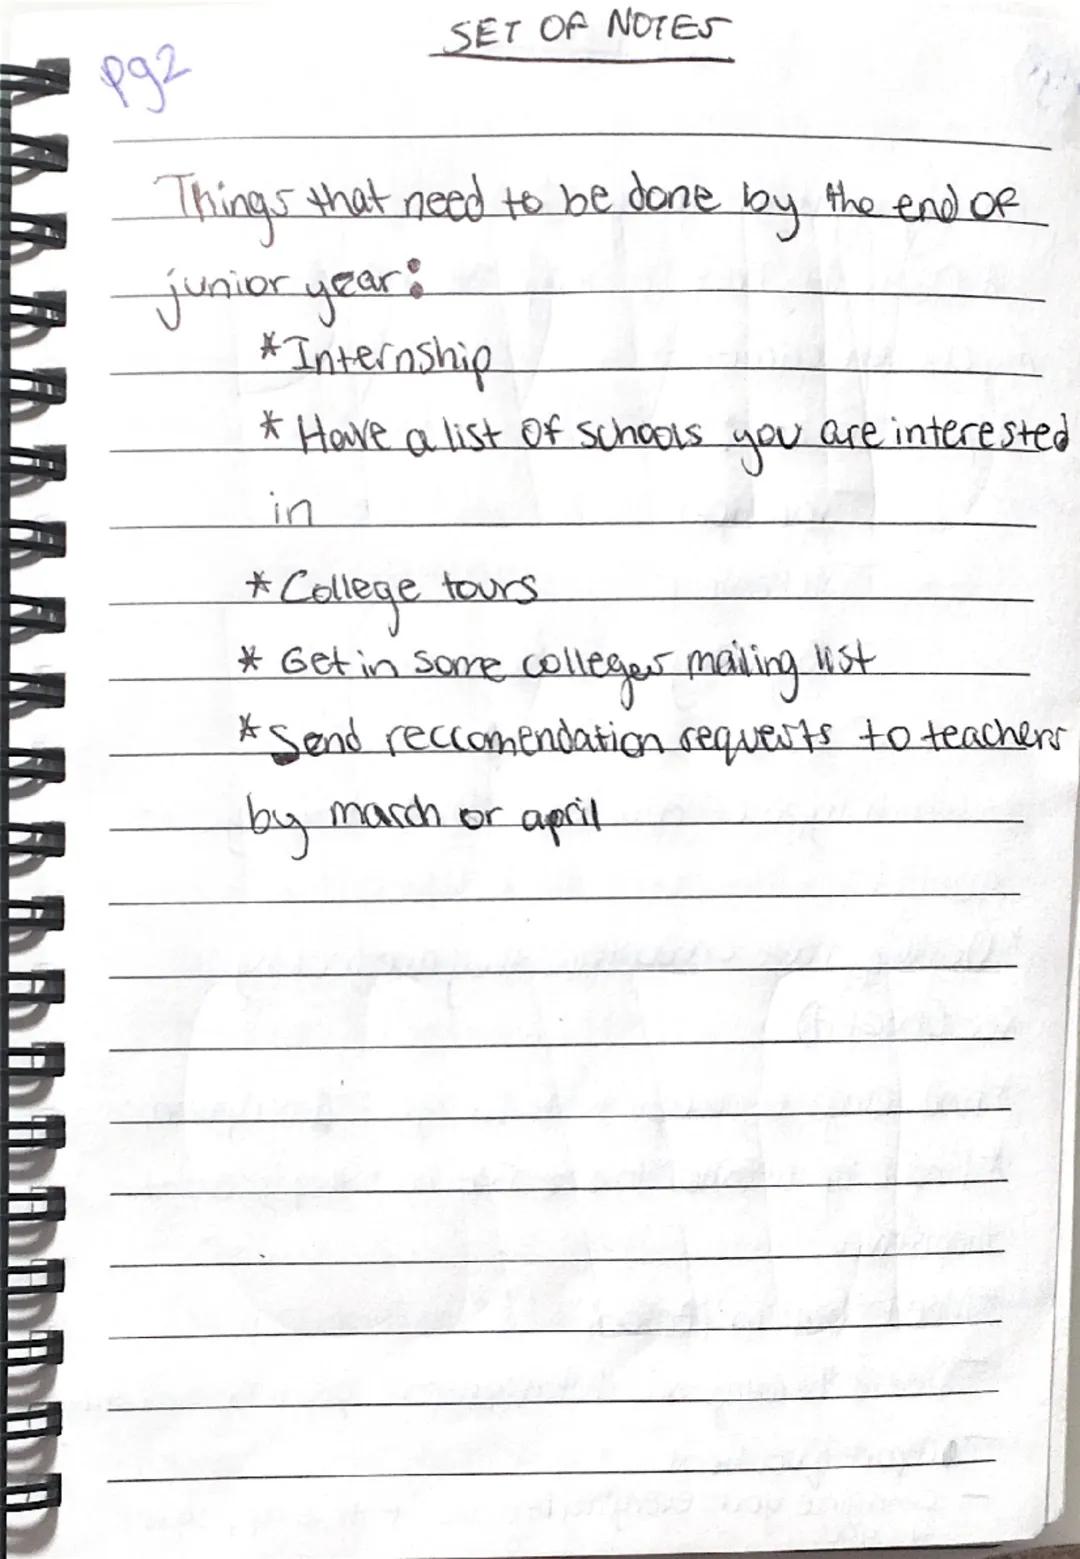 SET OF NOTES
pg2
Things that need to be done by the end of
junior year:
*Internship
* Have a list of schools you are interested
in
* College tours
* Get in some colleges mailing list
* Send reccomendation requests to teachers
by march or april